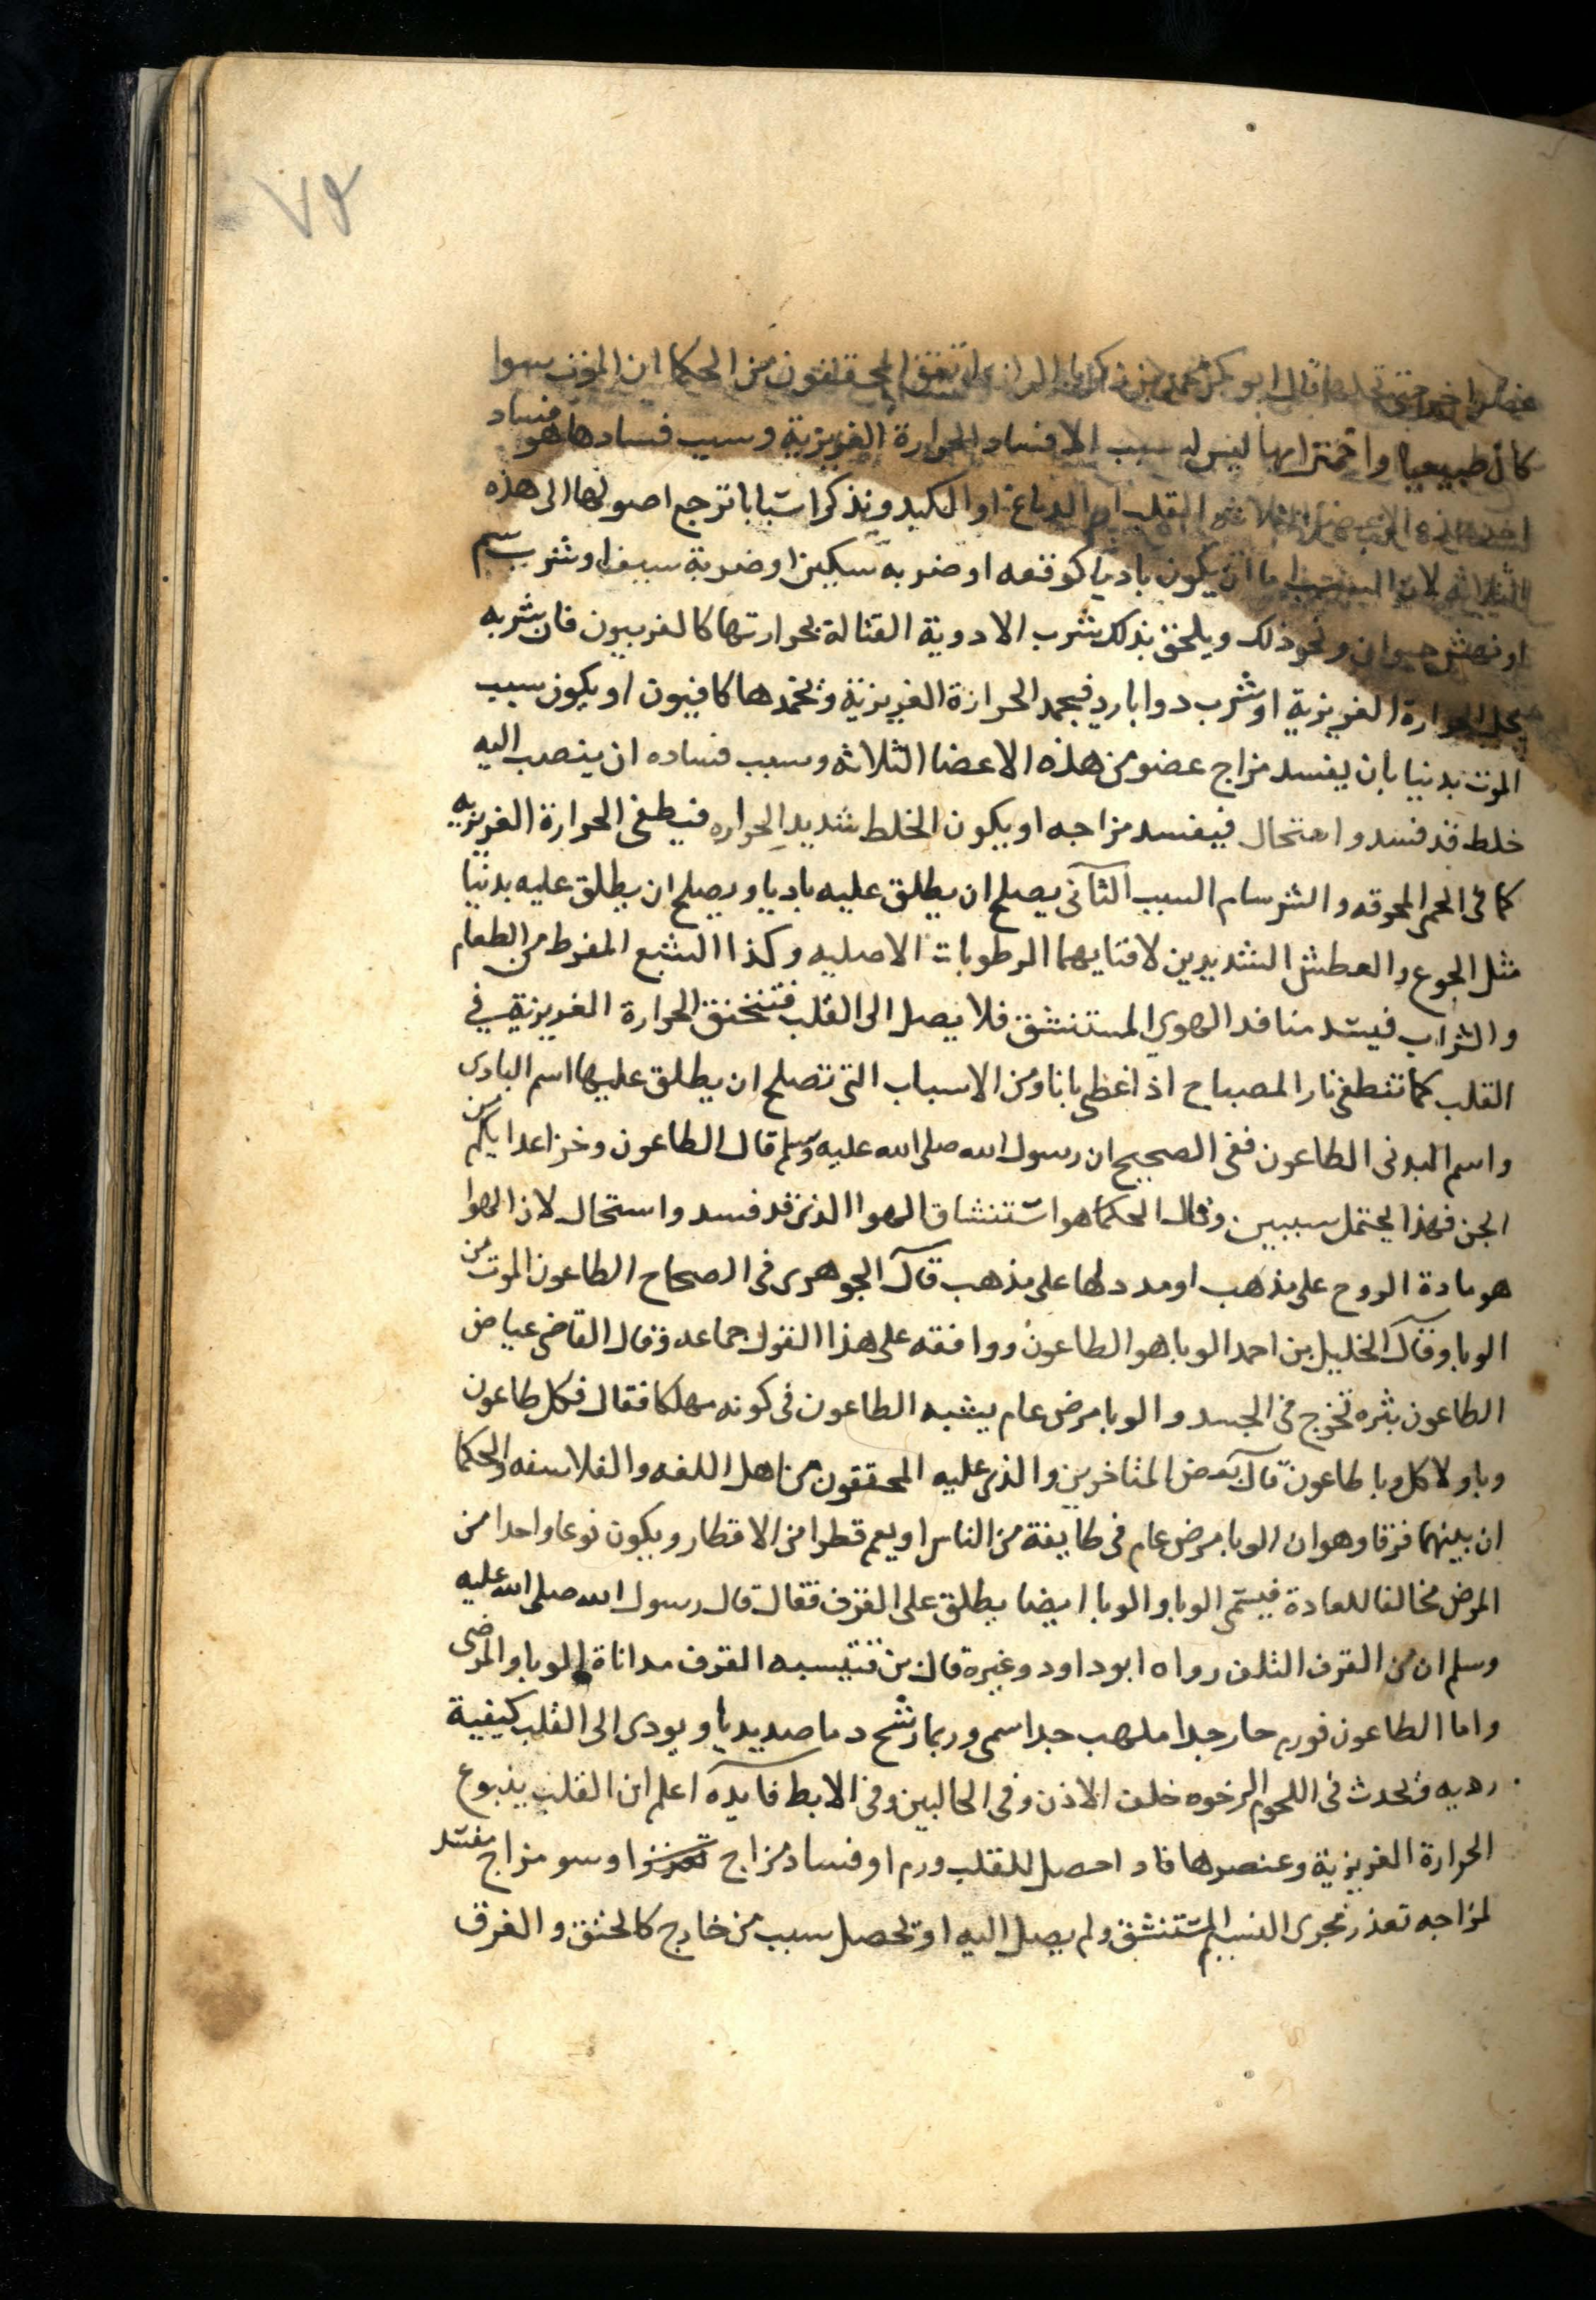 ٧٩
قال ابو بكر محمد بن زكريا الرازي اتفق المحققون من الحكما ان الموت سوا
كان طبيعيا او اخترابها ليس له سبب الا فساد الحرارة الغريزية وسبب فسادها هو فساد
احد هذه الاعضا الثلاثه القلب او الدماغ او الكبد ونذكر اسبابا ترجع اصولها الى هذه
الثلاثه لان السبب اما ان يكون باديا كوقعه او ضربه سكين او ضربة سيف او شرب سم
او نهش حيوان ونحو ذلك ويلحق بذلك شرب الادوية القتالة بحرارتها كالفربيون فان شربه
يحلل الحرارة الغريزية او شرب دوا بارد فيجمد الحرارة الغريزية ويخمدها كافيون او يكون سبب
الموت بدنيا بان يفسد مزاج عضو من هذه الاعضا الثلاثه وسبب فساده ان ينصب اليه
خلط قد فسد واستحال فيفسد مزاجه او يكون الخلط شديد الحراره فيطفى الحرارة الغريزيه
كما فى الحمى المحرقه والشرسام السبب الثانى يصلح ان يطلق عليه باديا ويصلح ان يطلق عليه بدنيا
مثل الجوع والعطش الشديدين لافنايهما الرطوبات الاصليه وكذا الشبع المفرط من الطعام
والشراب فيسد منافد الهوي المستنشق فلا يصل الى القلب فتختنق الحرارة الغريزية في
القلب كما تنطفى نار المصباح اذا غطى باناومن الاسباب التى تصلح ان يطلق عليها اسم البادى
واسم البدنى الطاعون ففى الصحيح ان رسول الله صلى الله عليه وسلم قال الطاعون وخز اعدايكم من
الجن فهذا يحتمل سببين وقال الحكما هو استنشاق الهوا الذى قد فسد واستحال لان الهوا
هو مادة الروح على مذهب او مدد لها على مذهب قال الجوهرى فى الصحاح الطاعون الموت من
الوبا وقال الخليل بن احمد الوبا هو الطاعون ووافقه على هذا القول جماعه وقال القاضى عياض
الطاعون بثره تخرج فى الجسد والوبا مرض عام يشبه الطاعون فى كونه مهلكا فقال فكل طاعون
وبا ولا كل وبا طاعون قال بعض المتاخرين والذى عليه المحققون من اهل اللغه والفلاسفه والحكما
ان بينهما فرقا وهو ان الوبا مرض عام فى طايفة من الناس او يعم قطرا من الاقطار ويكون نوعا واحدا من
المرض مخالفا للعادة فيسمى الوبا والوبا ايضا يطلق على القرف فقال قال رسول الله صلى الله عليه
وسلم ان من القرف التلف رواه ابو داود وغيره قال بن قتيبه القرف مداناة الوبا والمرضى
واما الطاعون فورم حار جدا ملهب جدا سمى وربما رشح دما صديديا ويودى الى القلب كيفية
رديه ويحدث فى اللحوم الرخوه خلف الاذن وفى الحالبين وفى الابط فايده اعلم ان القلب ينبوع
الحرارة الغريزية وعنصرها فاد احصل للقلب ورم او فساد مزاج او سو مزاج مفسد
لمزاجه تعذر مجرى النسيم المستنشق ولم يصل اليه او يحصل سبب من خارج كالخنق والغرق